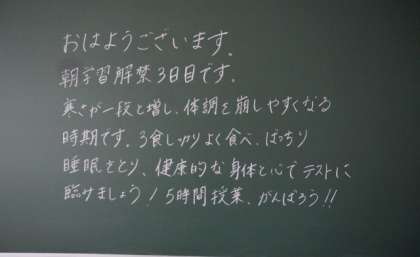 おはようございます。
朝学習解禁3日目です。
寒さが一段と増し、体調を崩しやすくなる
時期です。3食しっかりよく食べ、ばっちり
睡眠をとり、健康的な身体と心でテストに
臨みましょう！5時間授業、がんばろう!!